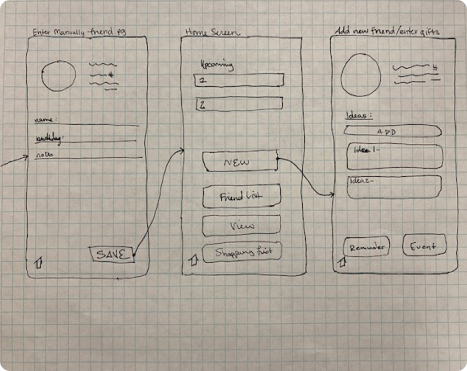 Enter Manually-friend pg
name:
birthday:
notes
SAVE
Home Screen
Upcoming
1
2
NEW
Friend List
View
Shopping List
Add new friend/enter gifts
Ideas:
ADD
Idea 1-
Idea2-
Reminder
Event